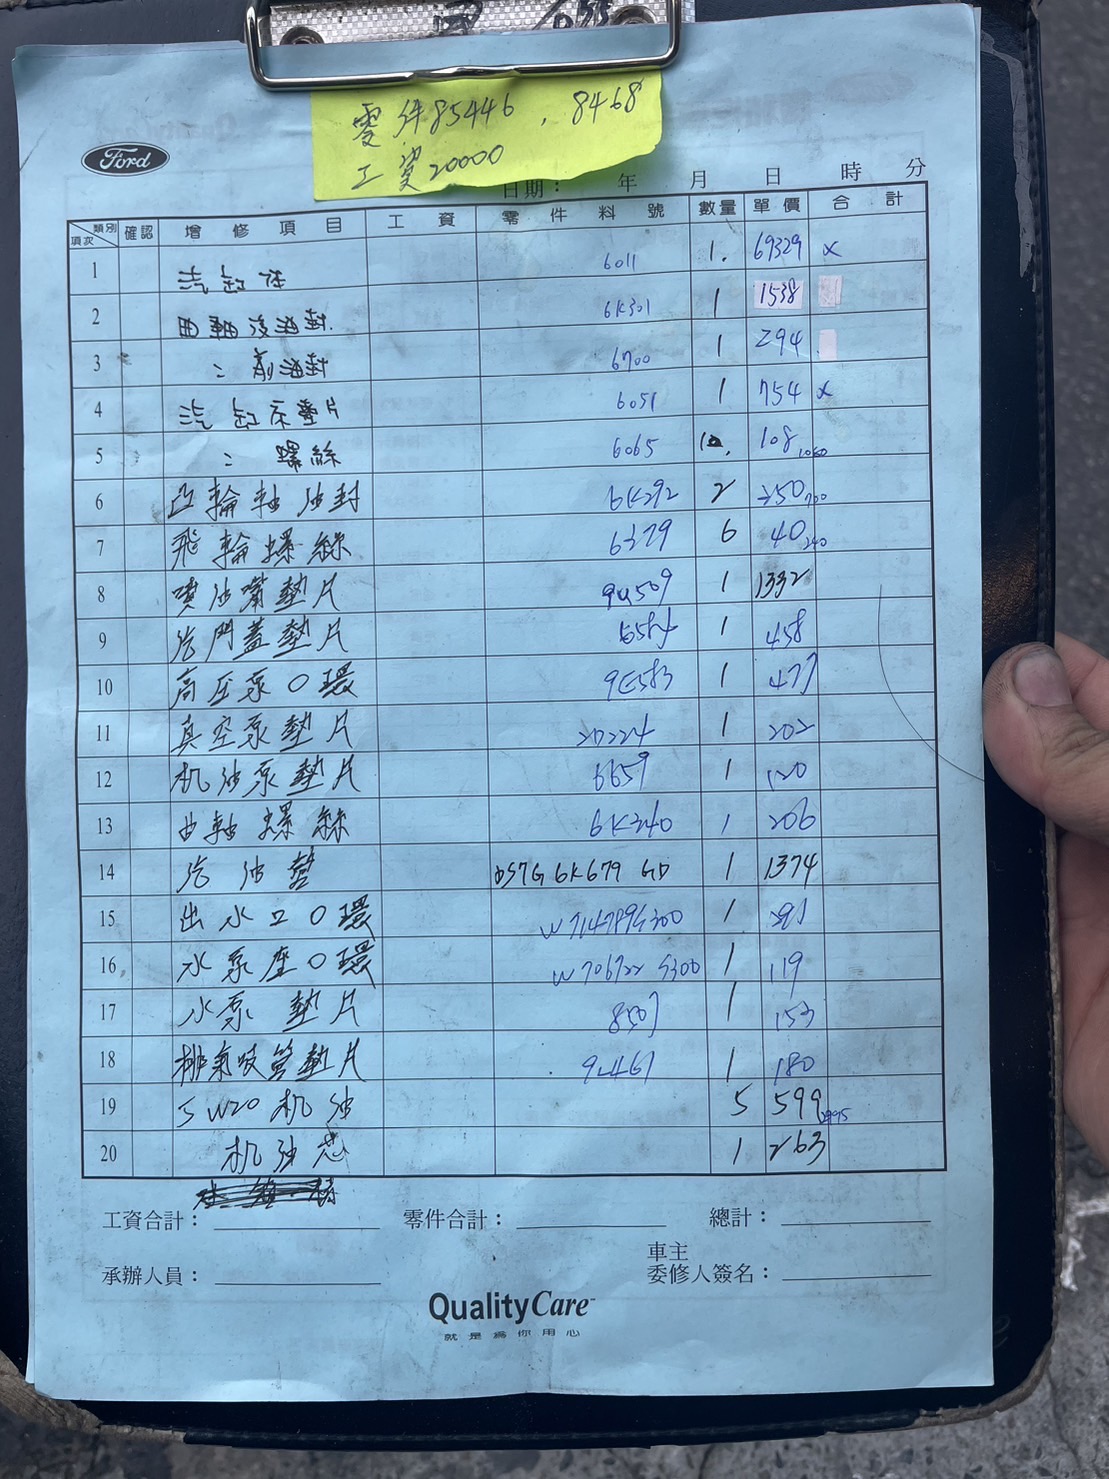 零件85446 , 8468
工資20000
Ford
日期： 年 月 日 時 分
類別 項次 確認 增修項目 工資 零件料號 數量 單價 合計
1 汽缸 6011 1. 69329 x
2 曲軸後油封. 6K301 1 1538
3 〃 前油封 6700 1 294
4 汽缸床墊片 6051 1 754 x
5 〃 螺絲 6065 10. 108 1080
6 凸輪軸油封 6K292 2 350 700
7 飛輪螺絲 6379 6 40 240
8 噴油嘴墊片 9U509 1 1332
9 汽門蓋墊片 6584 1 458
10 高压泵O環 9E583 1 477
11 真空泵墊片 2D224 1 202
12 机油泵墊片 6659 1 120
13 曲軸螺絲 6K340 1 206
14 汽油 DS7G 6K679 GD 1 1374
15 出水口O環 W714789S300 1 291
16 水泵座O環 W706722 S300 1 119
17 水泵墊片 8507 1 153
18 排氣岐管墊片 9L461 1 180
19 5W20机油 5 599 2995
20 机油芯 1 263
工資合計： 零件合計： 總計：
車主
承辦人員： 委修人簽名：
QualityCare
就是為你用心